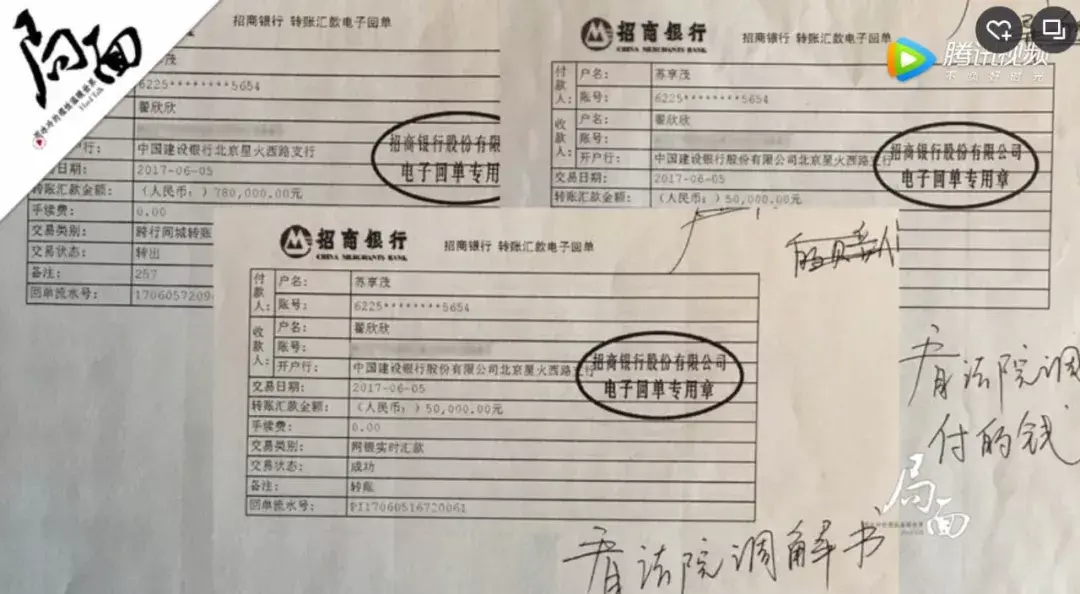 局面
招商银行 转账汇款电子回单
6225********5654
翟欣欣
中国建设银行北京星火西路支行
2017-06-05
转账汇款金额: (人民币:)780,000.00元
手续费: 0.00
交易类别: 跨行同城转账
交易状态: 转出
备注: 257
回单流水号: 170605720
招商银行股份有限
电子回单专用
招商银行
CHINA MERCHANTS BANK
招商银行 转账汇款电子回单
付款人: 户名: 苏享茂
账号: 6225********5654
收款人: 户名: 翟欣欣
账号:
开户行: 中国建设银行股份有限公司北京星火西路支行
交易日期: 2017-06-05
转账汇款金额: (人民币:)50,000.00元
招商银行股份有限公司
电子回单专用章
腾讯视频
不负好时光
招商银行
CHINA MERCHANTS BANK
招商银行 转账汇款电子回单
付款人: 户名: 苏享茂
账号: 6225********5654
收款人: 户名: 翟欣欣
账号:
开户行: 中国建设银行股份有限公司北京星火西路支行
交易日期: 2017-06-05
转账汇款金额: (人民币:)50,000.00元
手续费: 0.00
交易类别: 网银实时汇款
交易状态: 成功
备注: 转账
回单流水号: PI17060516720061
招商银行股份有限公司
电子回单专用章
的
看法院调
付的钱
看法院调解书
局面